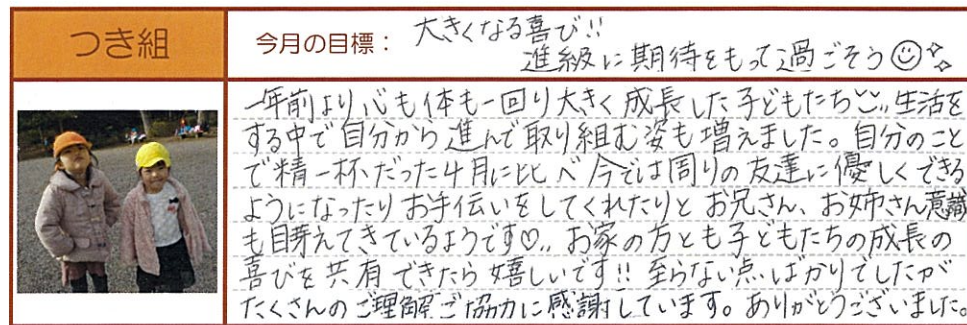 つき組
今月の目標：大きくなる喜び!!
進級に期待をもって過ごそう☺✧
一年前より心も体も一回り大きく成長した子どもたち‥生活を
する中で自分から進んで取り組む姿も増えました。自分のこと
で精一杯だった4月に比べ今では周りの友達に優しくできる
ようになったりお手伝いをしてくれたりとお兄さん、お姉さん意識
も目芽えてきているようです♡‥お家の方とも子どもたちの成長の
喜びを共有できたら嬉しいです!!至らない点ばかりでしたが
たくさんのご理解ご協力に感謝しています。ありがとうございました。